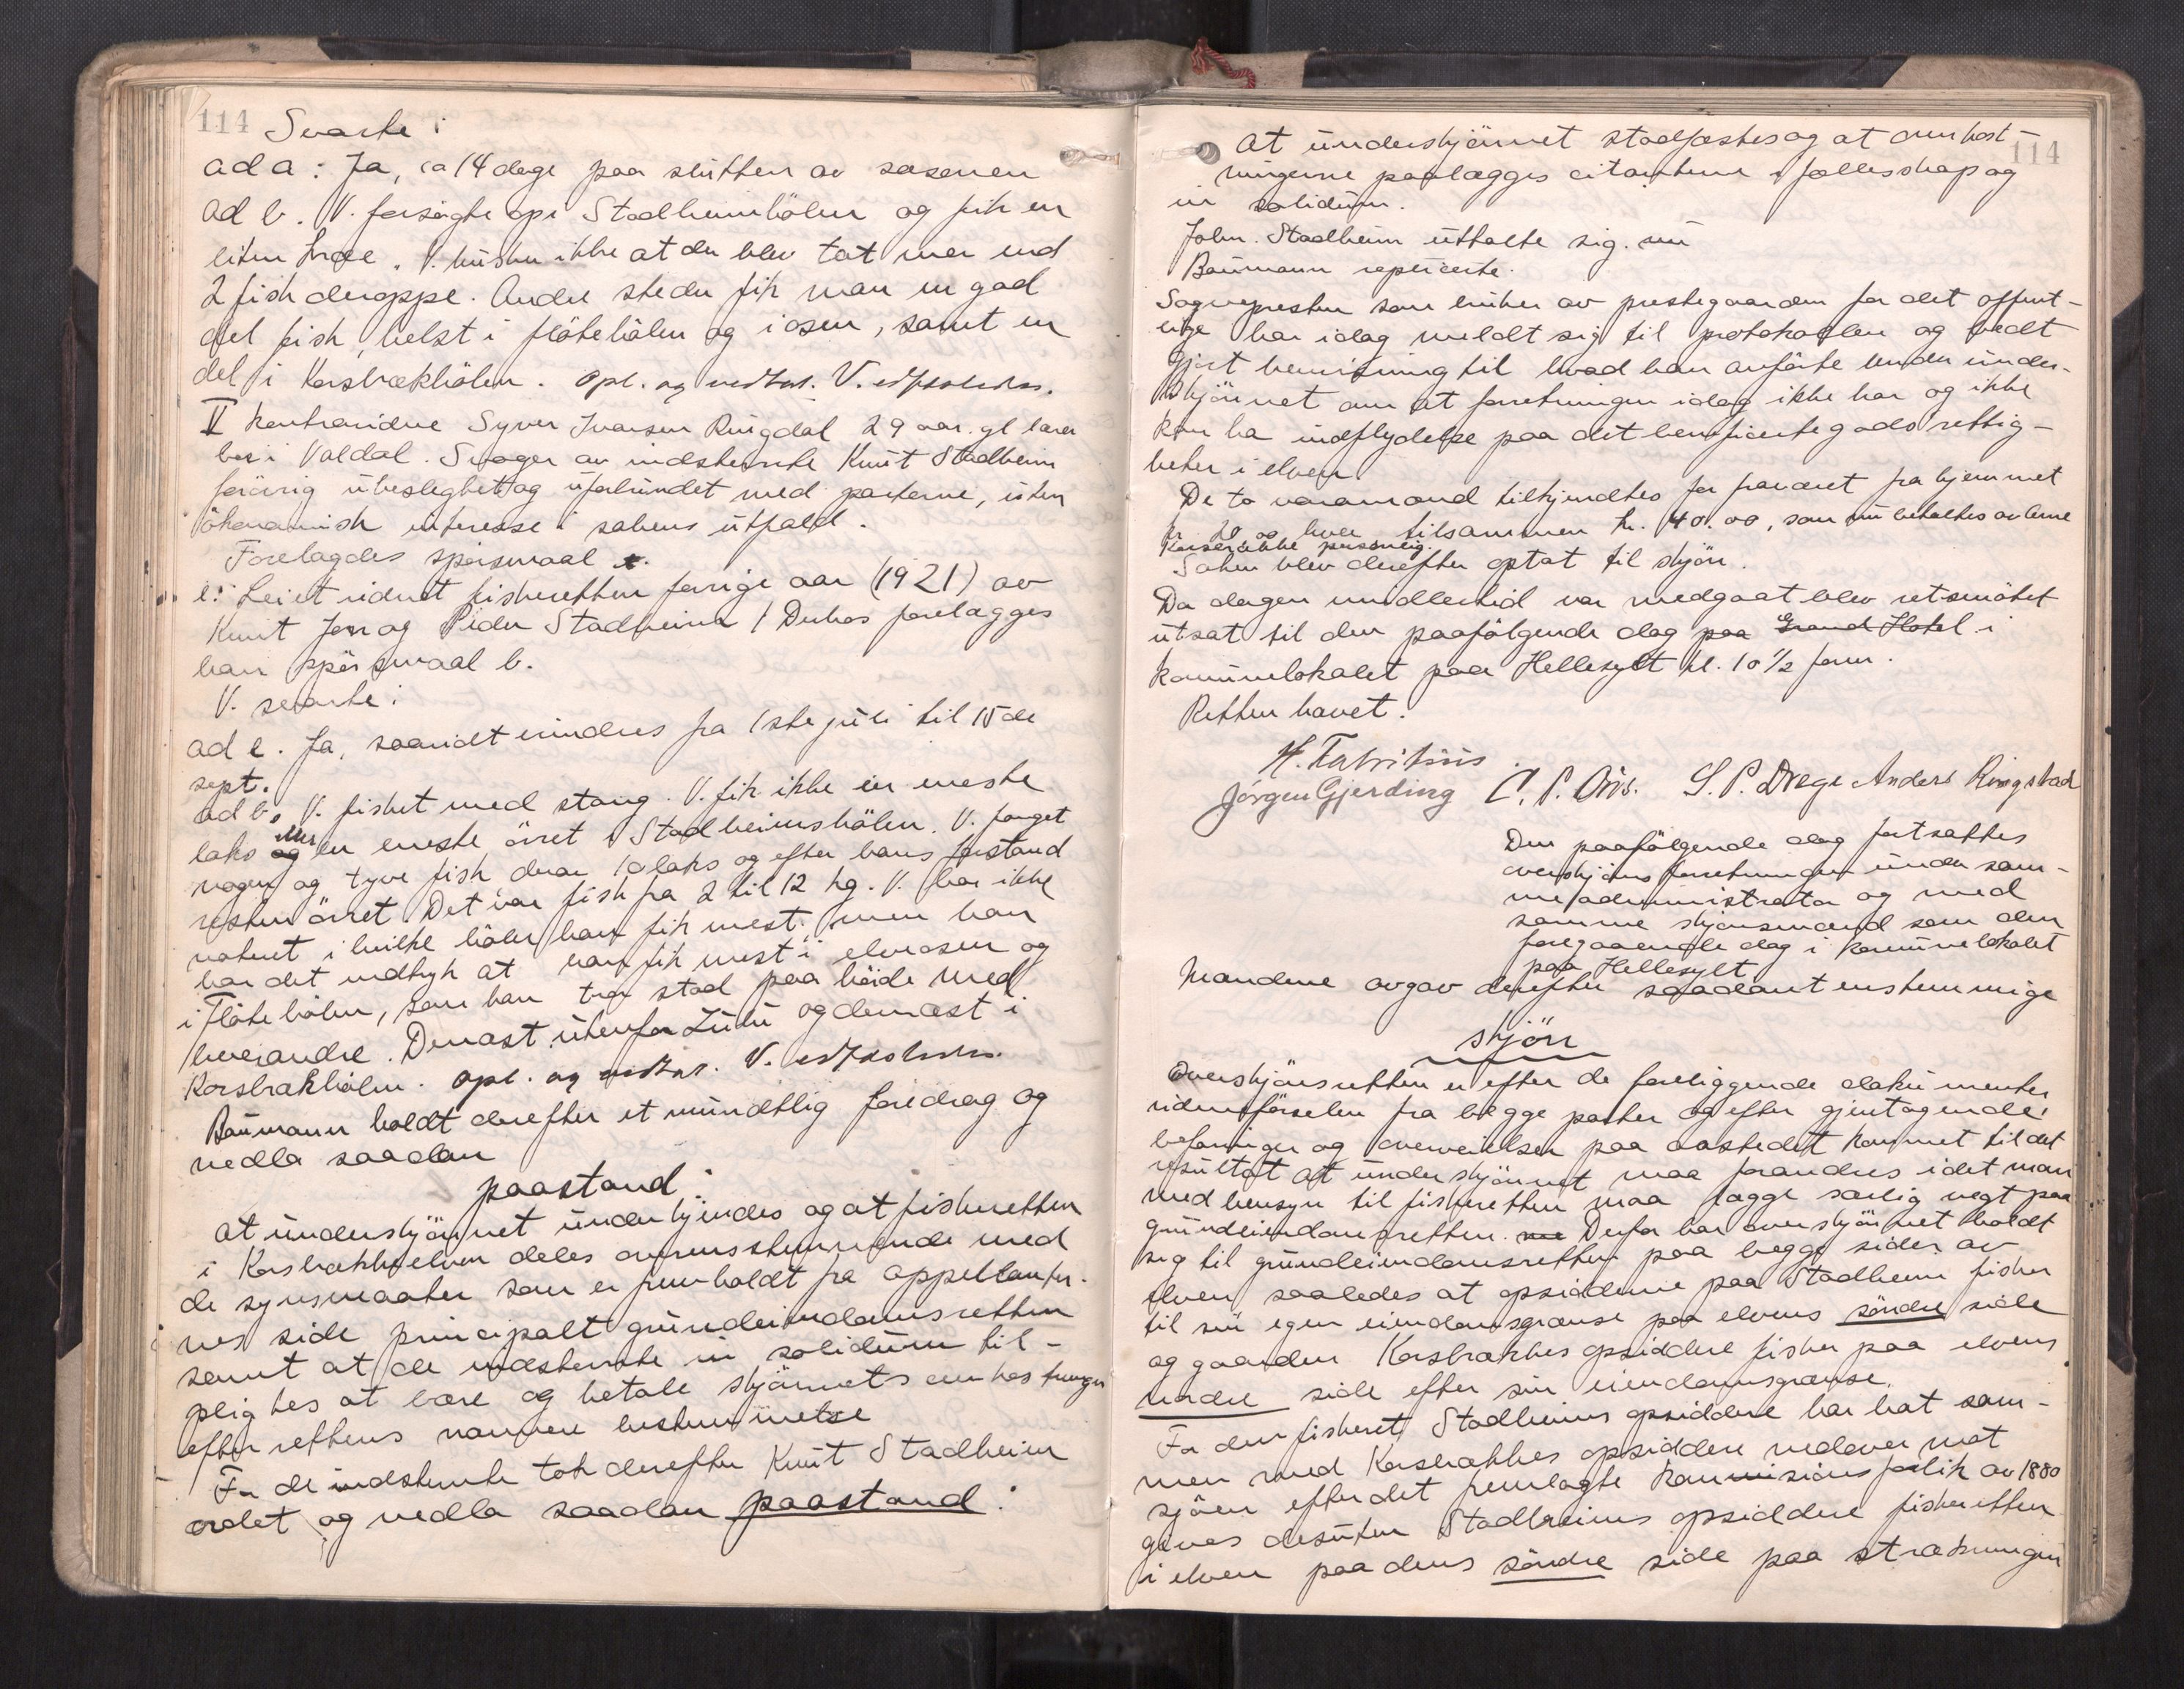 114
Svarte:
ad a: Ja, ca 14 dage paa slutten av sæsonen
ad b. V. forsøgte op i Stadheimhölen og fik en
liten kræe. V. husker ikke at der blev tat mer end
2 fisk deroppe. Andre steder fik man en god
del fisk, helst i flötehölen og i osen, samt en
del i Korsbrækhölen. Opl. og vedtat. V.
V kontravidne Syver Ivarsen Ringdal 29 aar. gl lærer
bor i Valdal. Svoger av indstevnte Knut Stadheim
forövrig ubeslegtet og uforbundet med parterne, uten
ökonomisk interesse i sakens utfald.
Forelagdes spörsmaal
e: Leiet vidnet fiskeretten forrige aar (1921) av
Knut Jon og Peder Stadheim / Derhos forelægges
han spörsmaal b.
V. svarte:
ad e. Ja, saavidt erindres fra 1ste juli til 15de
sept.
ad b. V. fisket med stang. V. fik ikke en eneste
laks eller en eneste örret i Stadheimshölen. V. fanget
nogen og tyve fisk derav 10 laks og efter hans forstand
resten örret. Det var fisk fra 2 til 12 kg. V. har ikke
notert i hvilke höler han fik mest, men han
har det indtryk at han fik mest i elveosen og
i Flötehölen, som han tror stod paa höide med
hverandre. Dernæst utenfor og dernæst i
Korsbrækhölen. Opl. og vedtat. V.
Baumann holdt derefter et mundtlig foredrag og
nedla saadan
paastand:
at underskjönnet underkjendes og at fiskeretten
i Korsbrækkelven deles overensstemmende med
de synsmaater som er fremholdt fra appellanter-
nes side principalt grundeiendomsretten
samt at de indstevnte in solidum til-
pligtes at bære og betale skjönnets omkostninger
efter rettens nærmere bestemmelse
For de indstevnte tok derefter Knut Stadheim
ordet og nedla saadan paastand:
114
At underskjönnet stadfæstes og at omkost-
ningerne paalægges citanterne i fællesskap og
in solidum.
John. Stadheim uttalte sig. nu
Baumann replicerte.
Sognepresten som bruker av prestegaarden for det offent-
lige har idag meldt sig til protokollen og bedt
gjort henvisning til hvad han anförte under under-
skjönnet om at forretningen idag ikke har og ikke
kan ha indflydelse paa det beneficerte gods rettig-
heter i elven.
De to varamænd tilkjendtes for fraværet fra hjemmet
kr 20 00 hver tilsammen kr. 40.00, som nu betaltes av Arne
Korsbrække personlig.
Saken blev derefter optat til skjön.
Da dagen imidlertid var medgaat blev retsmötet
utsat til den paafölgende dag paa Grand Hotel i
kommunelokalet paa Hellesylt kl. 10 ½ form.
Retten hævet.
H. Fabritius
Jørgen Gjerding C. P. S. P. Drege Anders Ringstad
Den paafölgende dag fortsattes
overskjönsforretningen under sam-
me administrator og med
samme skjönsmænd som den
foregaaende dag i kommunelokalet
paa Hellesylt
Mændene avgav derefter saadant enstemmige
skjön
Overskjönsretten er efter de foreliggende dokumenter
vidneförselen fra begge parter og efter gjentagende
befaringer og overveielser paa aastedet kommet til det
resultat at underskjönnet maa forandres idet man
med hensyn til fiskeretten maa lægge særlig vegt paa
grundeiendomsretten. Derfor har overskjönnet holdt
sig til grundeiendomsretten paa begge sider av
elven saaledes at opsidderne paa Stadheim fisker
til sin egen eiendomsgrænse paa elvens söndre side
og gaarden Korsbrækkes opsiddere fisker paa elvens
nordre side efter sin eiendomsgrænse.
For den fiskeret Stadheims opsiddere har hat sam-
men med Korsbrækkes opsiddere nedover mot
sjöen efter det fremlagte kommisionsforlik av 1880
gives desuten Stadheims opsiddere fiskeretten
i elven paa dens söndre side paa strækningen